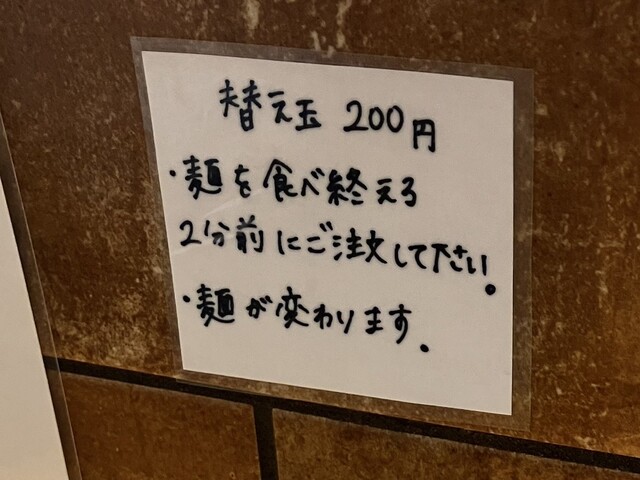 替え玉 200円
・麺を食べ終える
2分前にご注文して下さい。
・麺が変わります。